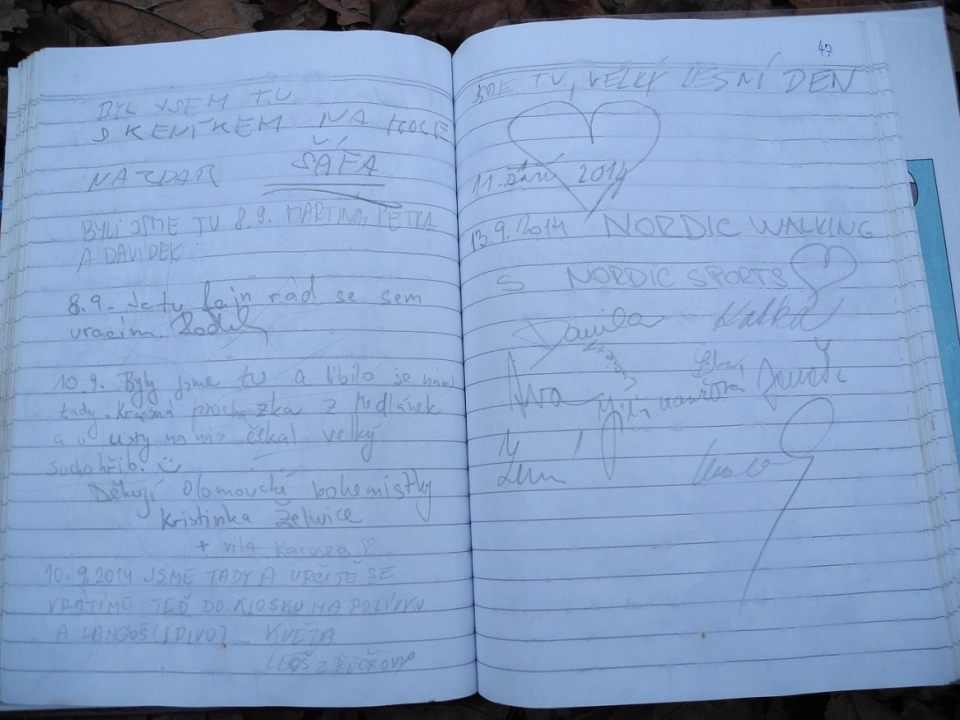 BYL JSEM TU
S KENÍKEM NA KOLE
NAZDAR ŠÁFA
BYLI JSME TU 8.9. MARTINA, PETRA
A DAVÍDEK
8.9. Je tu fajn rád se sem
vracím. Radek
10.9. Byly jsme tu a líbilo se nám
tady. Krásná procházka z Medlánek
a u cesty na nás čekal velký
suchohřib.
Děkují olomoucké bohemistky
Kristinka Želwice
+ víla
10.9.2014 JSME TADY A URČITĚ SE
VRÁTÍME TEĎ DO KIOSKU NA POLÍVKU
A LANGOŠ (PIVO) KVĚTA
LEOŠ Z ŘEČKOVIC
47
JSME TU, VELKÝ LESNÍ DEN
11. září 2014
13.9.2014 NORDIC WALKING
S NORDIC SPORTS
Danila Katka
Iva